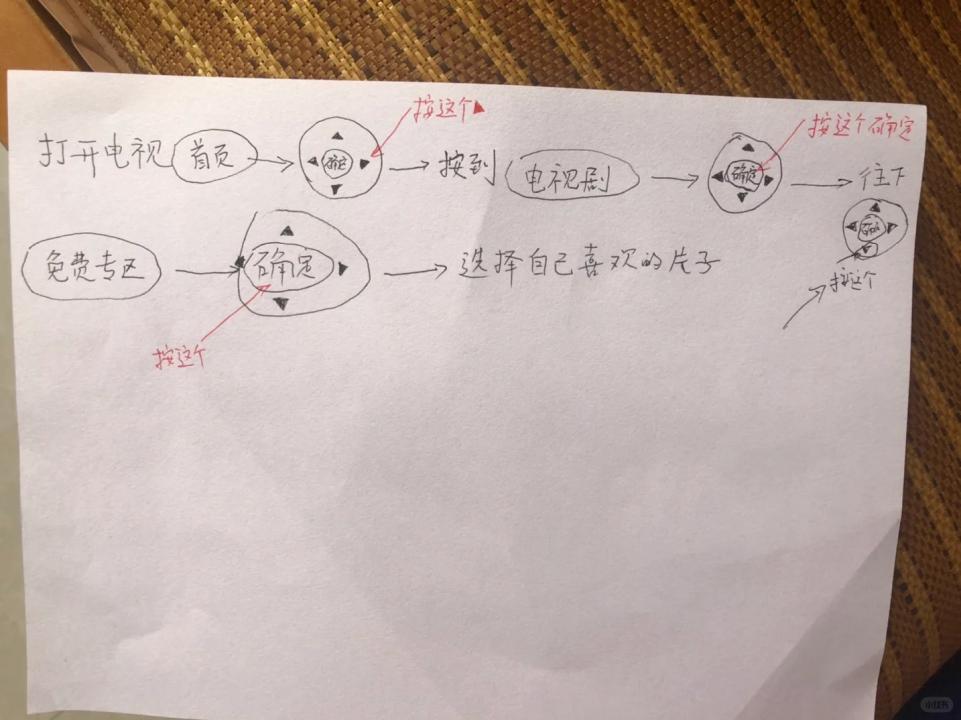 按这个▲
按这个确定
打开电视 首页 → 确定 → 按到 电视剧 → 确定 → 往下
确定
免费专区 → 确定 → 选择自己喜欢的片子
按这个
按这个
小红书